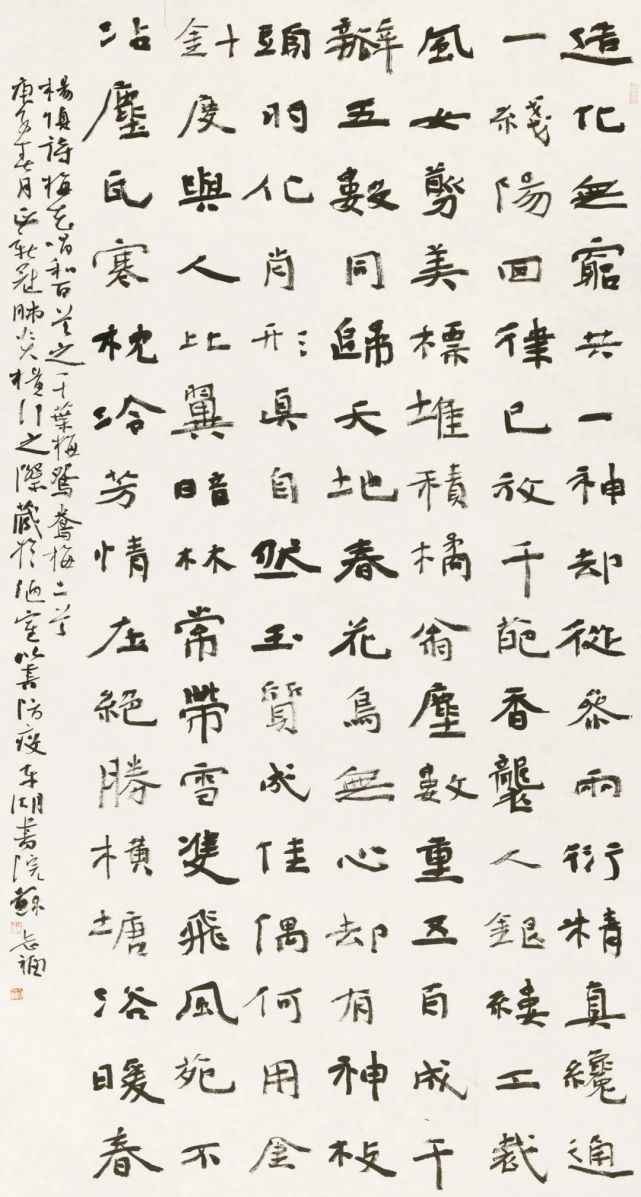 造化無窮共一神却從參兩衍精真纔通
一綫陽回律已放千葩香襲人銀縷工裁
風女剪美標堆積橘翁塵數重五自成千
瓣五數同歸天地春花鳥無心却有神枝
頭时化肖形真自然玉質成佳偶何用金
針度與人比翼暗林常帶雪雙飛風苑不
沾塵瓦寒枕冷芳情在絕勝橫塘浴暖春
楊慎詩梅花唱和百首之千葉梅鴛鴦梅二首
庚子春月正新冠肺炎橫行之際藏於陋室以書防疫東湖書院蘇